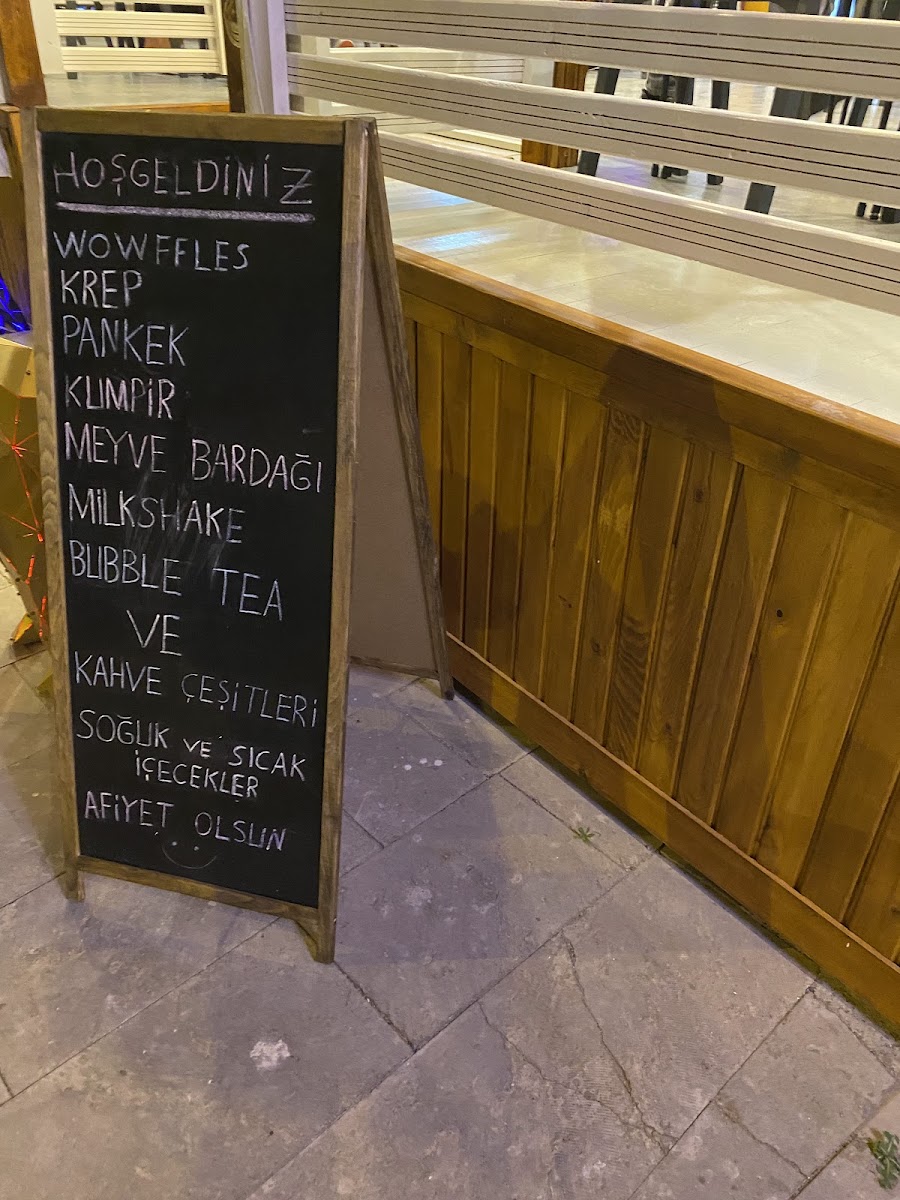 HOŞGELDİNİZ
WOWFFLES
KREP
PANKEK
KUMPİR
MEYVE BARDAĞI
MİLKSHAKE
BUBBLE TEA
VE
KAHVE ÇEŞİTLERİ
SOĞUK VE SICAK
İÇECEKLER
AFİYET OLSUN